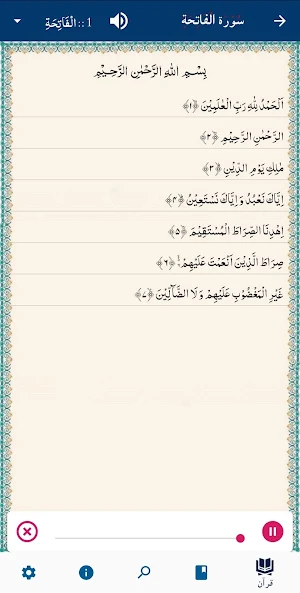 سورة الفاتحة
1 :: اَلْفَاتِحَةِ
بِسْمِ اللّٰهِ الرَّحْمٰنِ الرَّحِيْمِ
اَلْحَمْدُ لِلّٰهِ رَبِّ الْعٰلَمِيْنَ ﴿۱﴾
الرَّحْمٰنِ الرَّحِيْمِ ﴿۲﴾
مٰلِكِ يَوْمِ الدِّيْنِ ﴿۳﴾
اِيَّاكَ نَعْبُدُ وَ اِيَّاكَ نَسْتَعِيْنُ ﴿۴﴾
اِهْدِنَا الصِّرَاطَ الْمُسْتَقِيْمَ ﴿۵﴾
صِرَاطَ الَّذِيْنَ اَنْعَمْتَ عَلَيْهِمْ ﴿۶﴾
غَيْرِ الْمَغْضُوْبِ عَلَيْهِمْ وَ لَا الضَّآلِّيْنَ ﴿۷﴾
قرآن